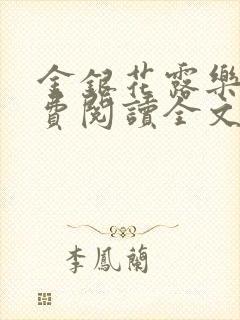 金銀花露樂
費閱讀全文
李鳳蘭